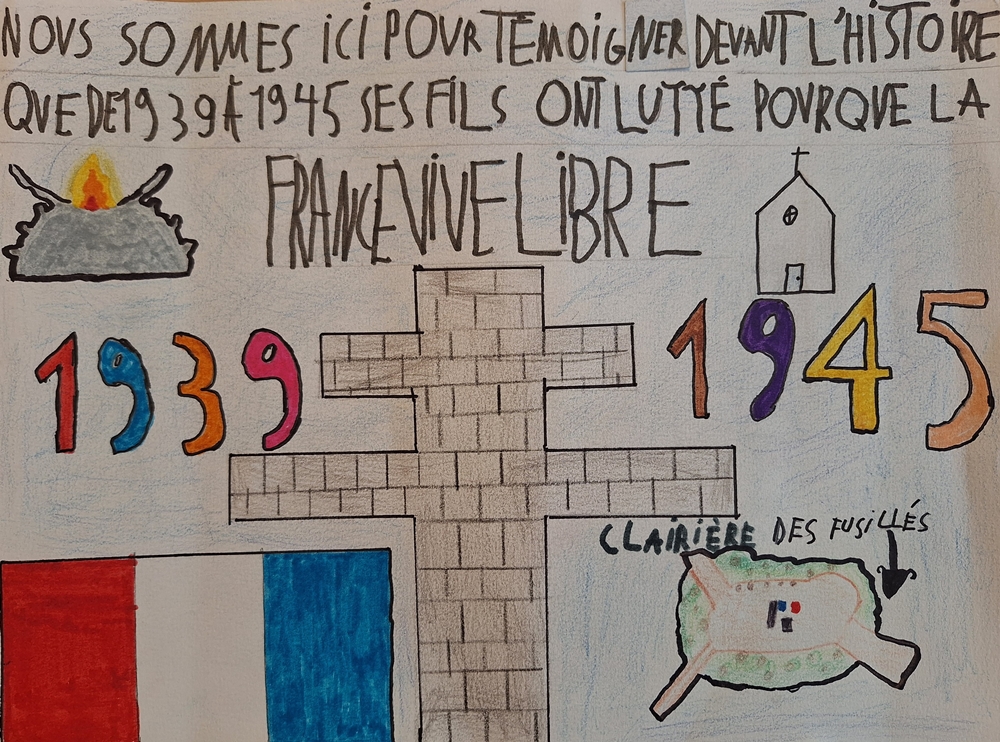 NOUS SOMMES iCi POUR TEMOiGNER DEVANT L'HiSTOIRE
QUE DE 1939 À 1945 SES FiLS ONT LUTTÉ POUR QUE LA
FRANCE VIVE LiBRE
1939
1945
CLAIRIÈRE DES FUSILLÉS